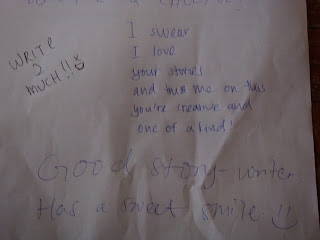 I swear
I love
your stories
and trust me on this
you're creative and
one of a kind!
WRITE
2
MUCH!!
Good story-writer
Has a sweet smile :)